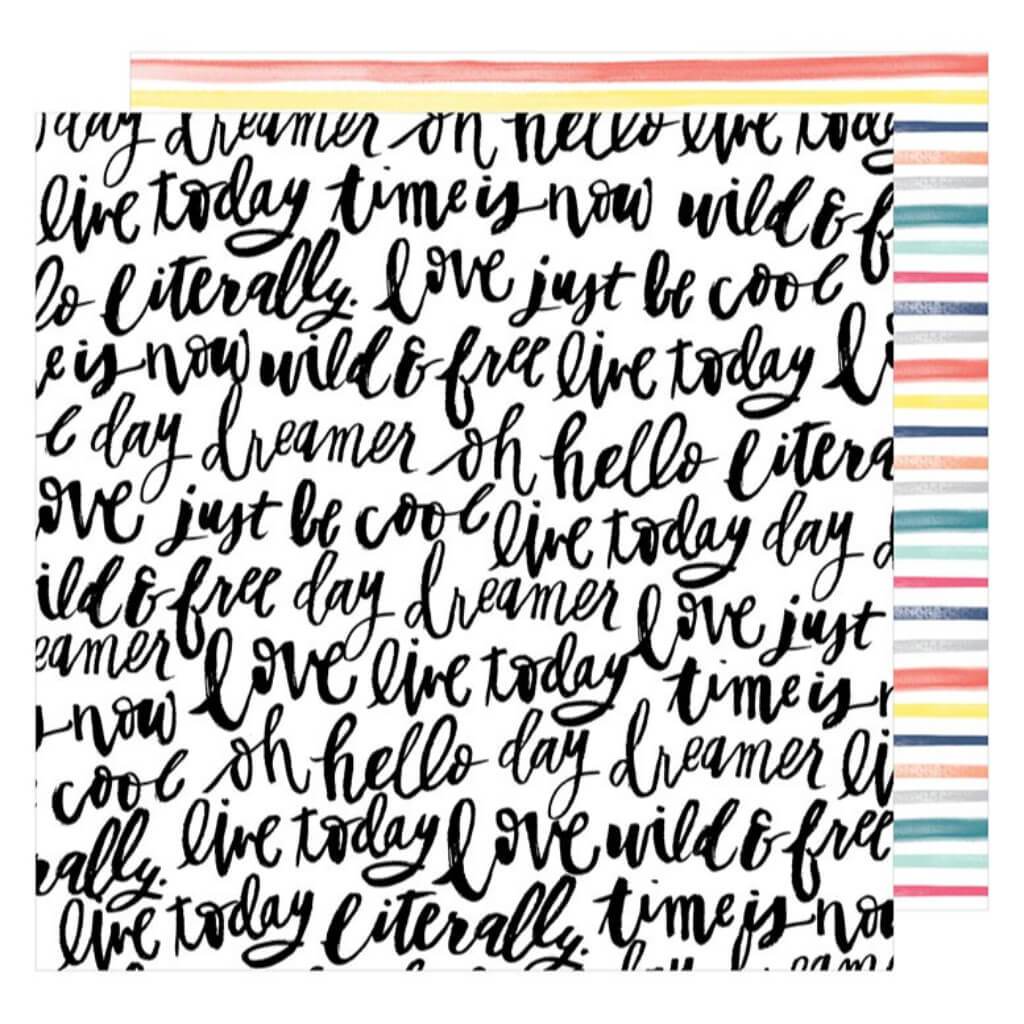 day dreamer oh hello live today
live today time is now wild & f
lo literally. love just be cool
e is now wild & free live today li
l day dreamer oh hello litera
ove just be cool live today day d
ild & free day dreamer love just
eamer love live today time is n
s now oh hello day dreamer li
e cool live today love wild & free
rally. live today literally. time is now